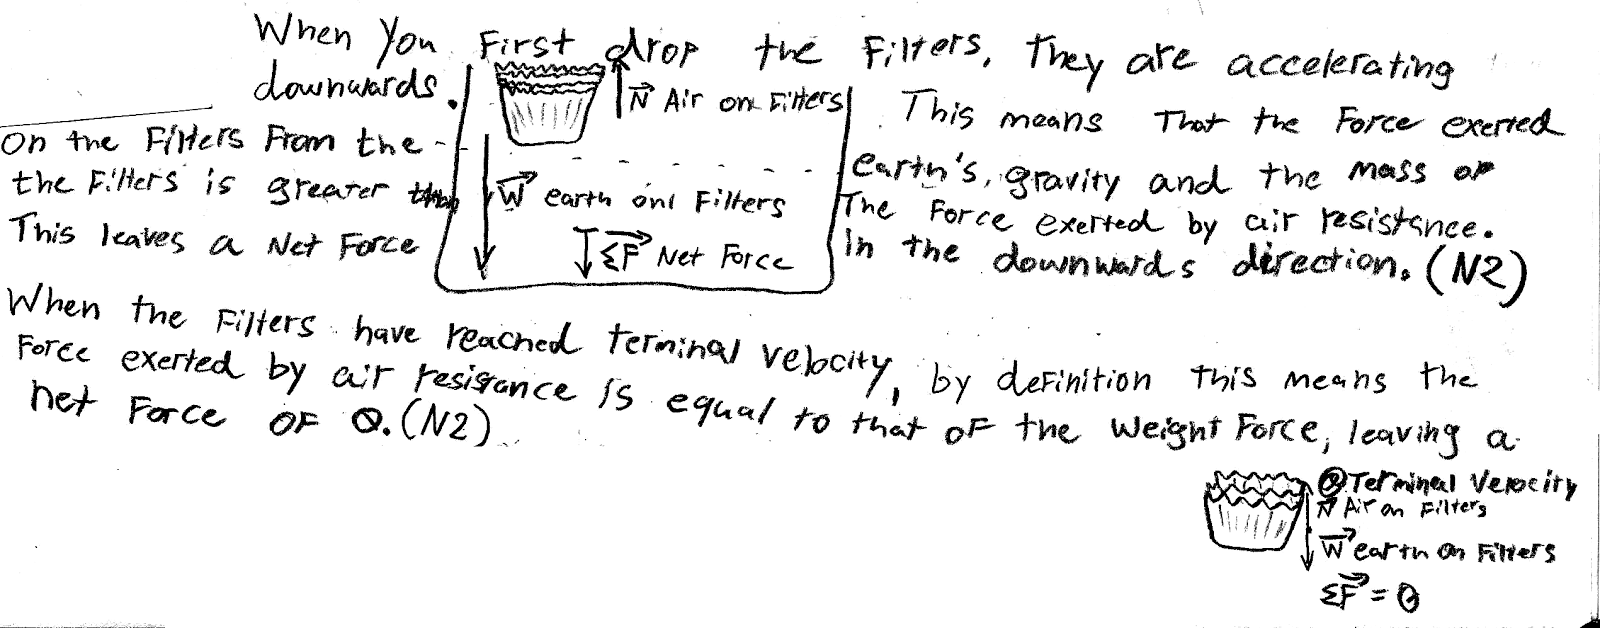 When you first drop the filters, they are accelerating
downwards. This means that the force exerted
on the filters from the earth's, gravity and the mass of
the filters is greater than the force exerted by air resistance.
This leaves a net force in the downwards direction. (N2)
N Air on Filters
W earth on Filters
ΣF Net Force
When the filters have reached terminal velocity, by definition this means the
force exerted by air resistance is equal to that of the weight force, leaving a
net force of 0. (N2)
@Terminal Velocity
N Air on Filters
W earth on Filters
ΣF = 0